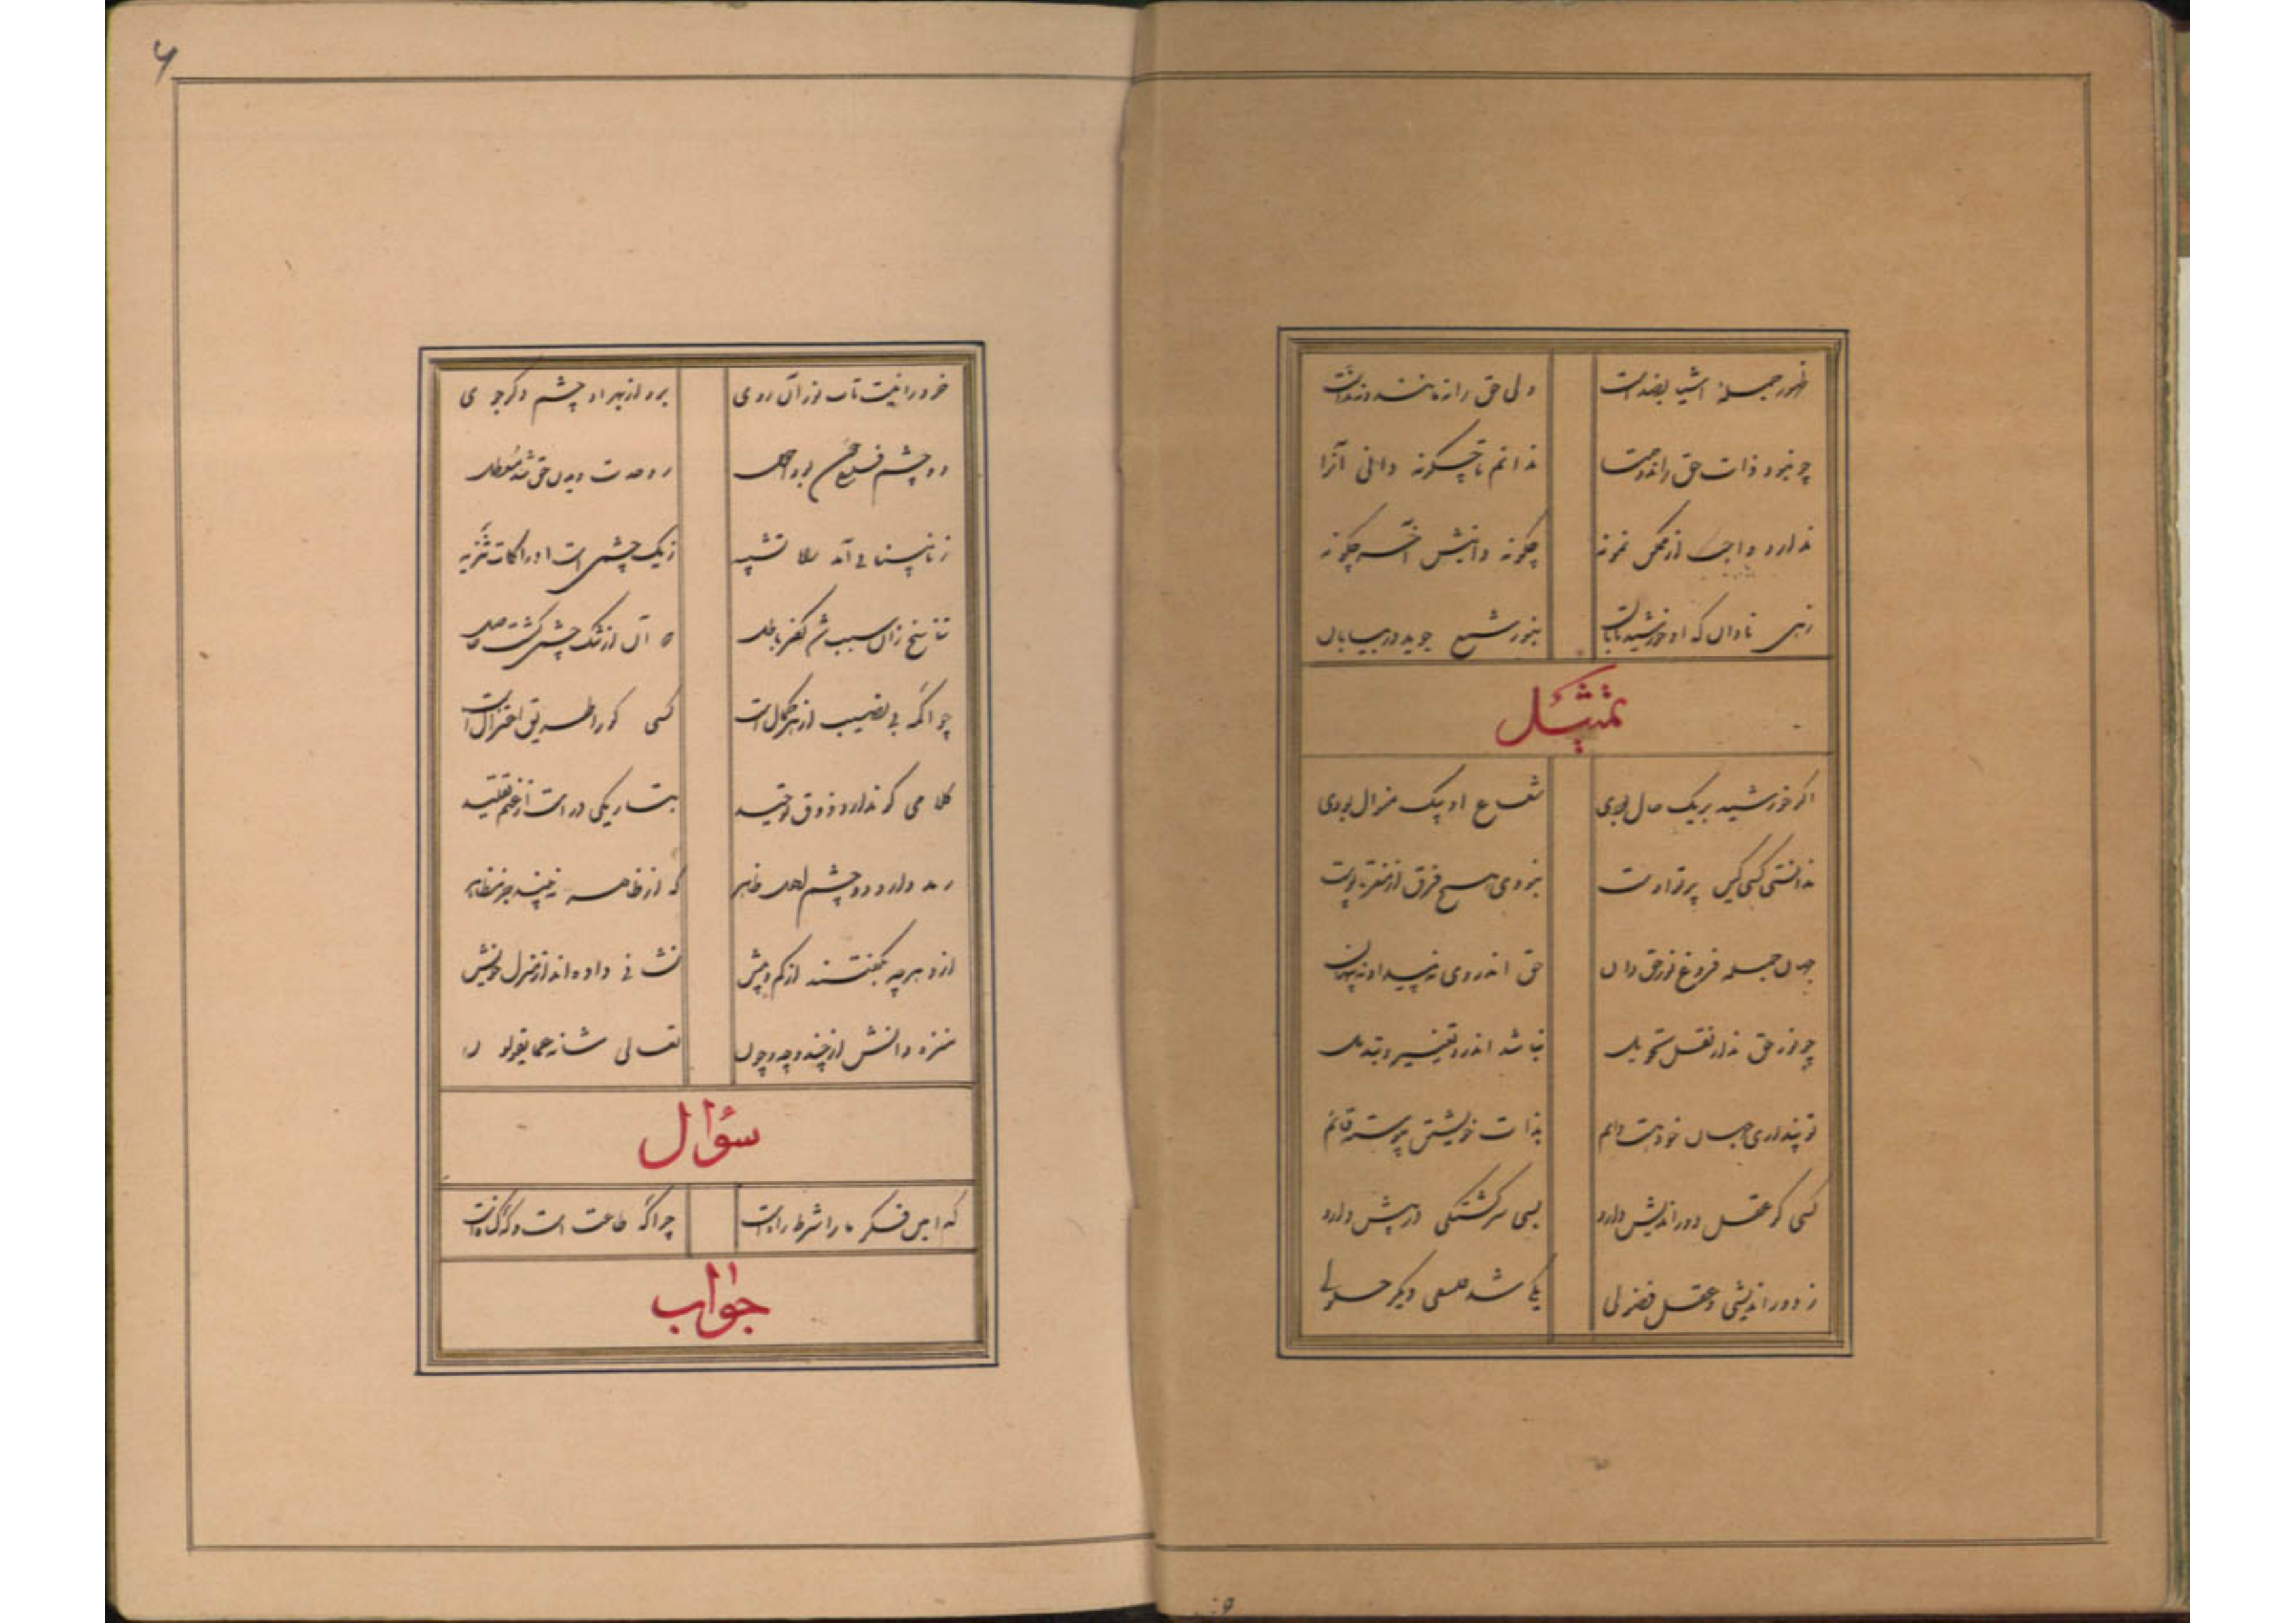 ظهور جمله اشیا بضد است ولی حق را نه مانند و نه ند است
چو نبود ذات حق را ند و همتا ندانم تا چگونه دانی آنرا
ندارد واجب از ممکن نمونه چگونه دانیش آخر چگونه
زهی نادان که او خورشید تابان بنور شمع جوید در بیابان
تمثیل
اگر خورشید بر یک حال بودی شعاع او بیک منوال بودی
ندانستی کسی کین پرتو اوست نبودی هیچ فرق از مغز تا پوست
جهان جمله فروغ نور حق دان حق اندر وی ز پیدا و نه پنهان
چو نور حق ندارد نقل و تحویل نباشد اندرو تغییر و تبدیل
تو پنداری جهان خود هست دایم بذات خویشتن پیوسته قائم
کسی کو عقل دوراندیش دارد بسی سرگشتگی در پیش دارد
ز دوراندیشی و عقل فضولی یکی شد فلسفی دیگر حلولی
۶
خرد را نیست تاب نور آن روی برو از بهر او چشم دگر جوی
دو چشم فلسفی چون بود احول ز وحدت دیدن حق شد معطل
ز نابینایی آمد راه تشبیه ز یک چشمی است ادراکات تنزیه
تناسخ زان سبب شد کفر و باطل که آن از تنگ چشمی گشت حاصل
چو اکمه بی نصیب از هر کمال است کسی کو را طریق اعتزال است
کلامی کو ندارد ذوق توحید بتاریکی در است از غیم تقلید
رمد دارد دو چشم اهل ظاهر که از ظاهر نبیند جز مظاهر
ازو هر چه بگفتند از کم و بیش نشانی داده اند از منزل خویش
منزه دانش از چند و چه و چون تعالی شانه عما یقولون
سؤال
کدامین فکر ما را شرط راه است چرا گه طاعت است و گه گناه است
جواب